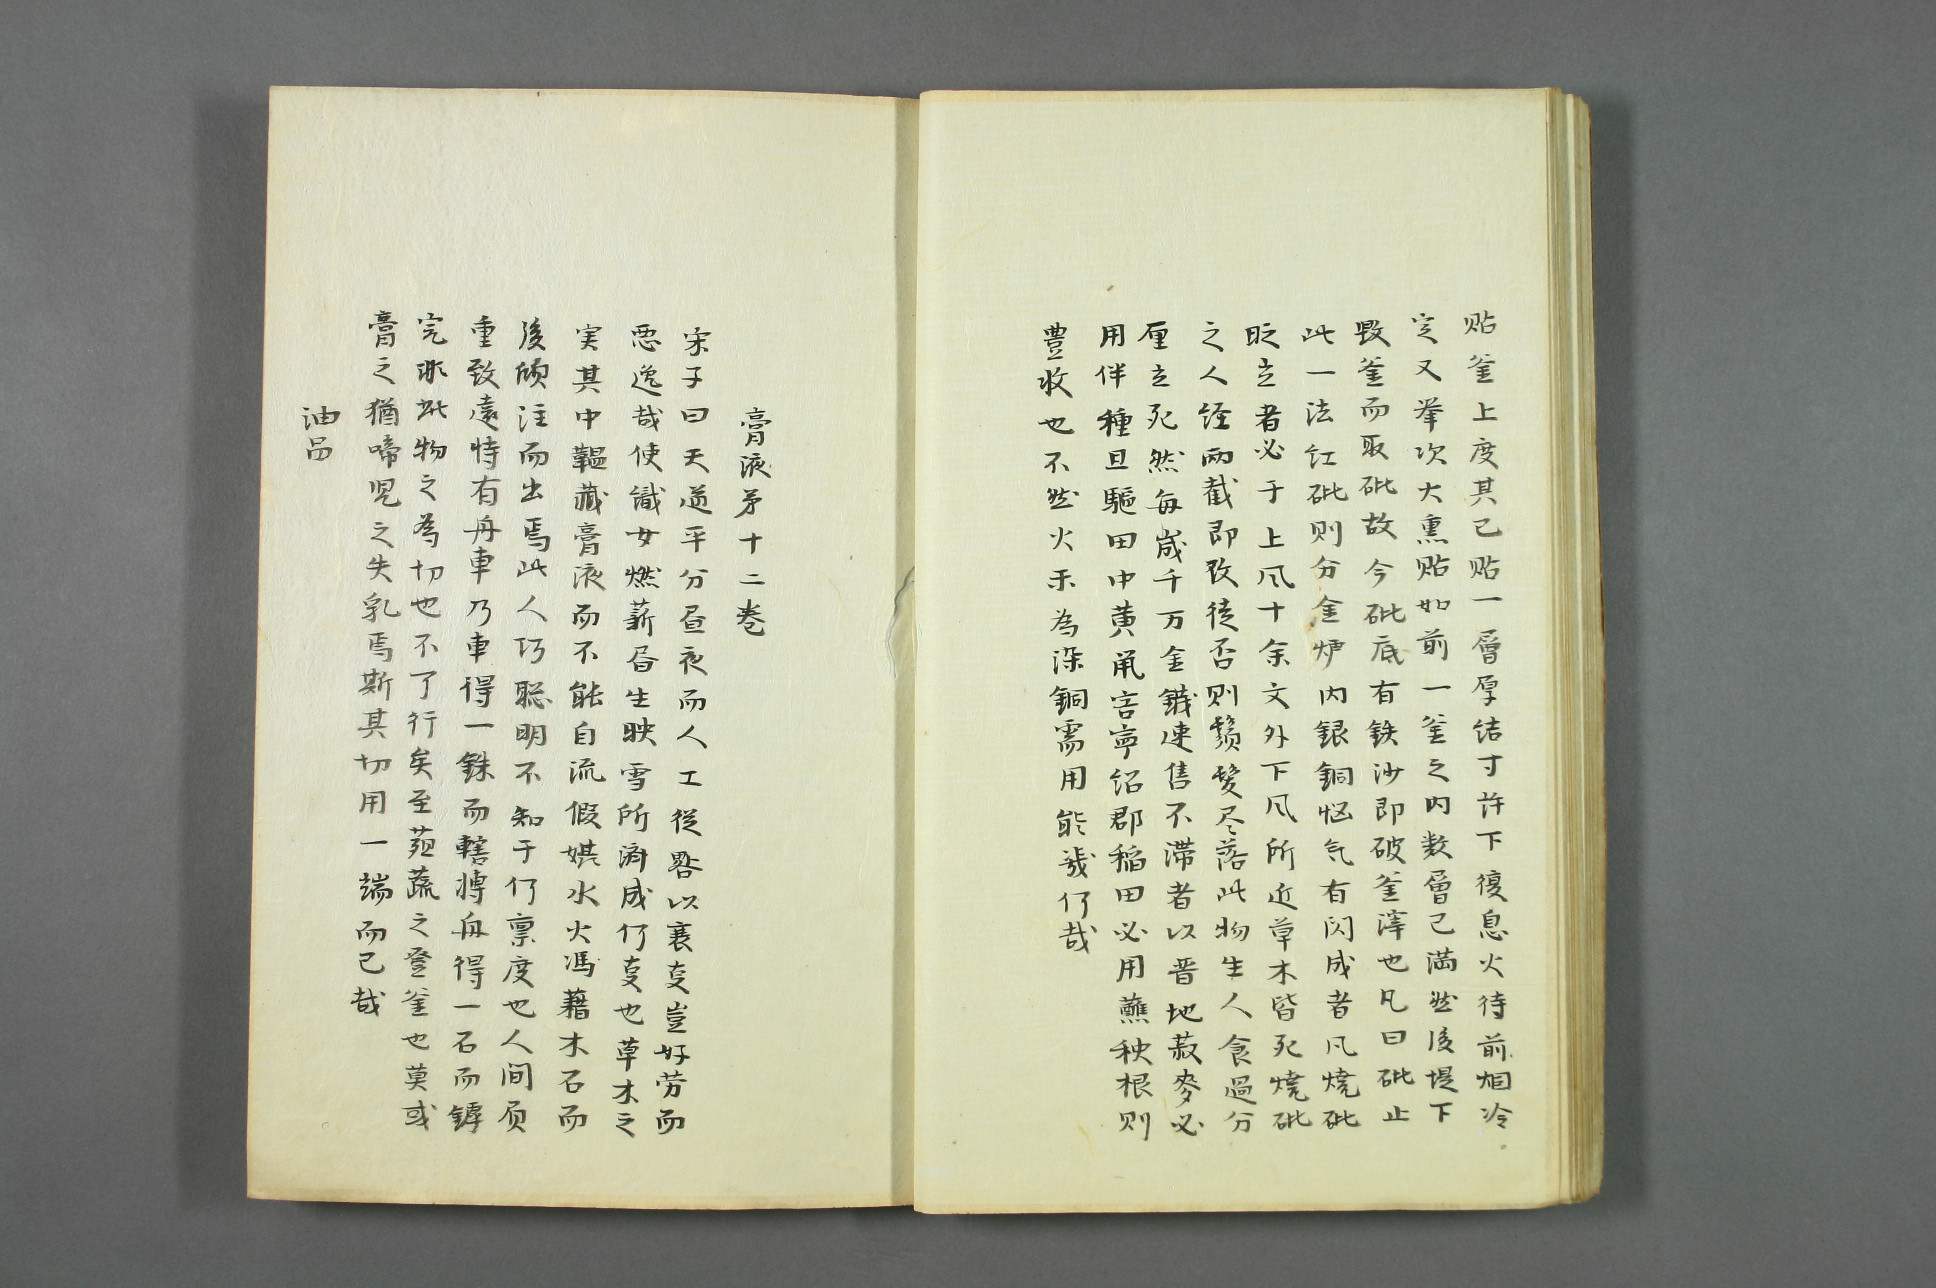 贴釜上度其已贴一層厚结寸许下復息火待前烟冷
定又举次大熏贴如前一釜之内数層已满然后提下
毁釜而取砒故今砒底有铁沙即破釜滓也凡曰砒止
此一法红砒则分金炉内银铜恼气有闪成者凡烧砒
时立者必于上风十余文外下风所近草木皆死烧砒
之人经两截即改徒否则鬚髮尽落此物生人食過分
厘立死然每歳千万金錢速售不滞者以晋地菽麥必
用伴種且驅田中黄鼠害寧绍郡稻田必用蘸秧根则
豊收也不然火禾为染铜需用能幾何哉
膏液第十二卷
宋子曰天道平分昼夜而人工従畧以襄亥豈好劳而
恶逸哉使識女燃薪居生映雪所濟成何亥也草木之
実其中韞蔵膏液而不能自流假媒水火馮藉木石而
後傾注而出焉此人巧聡明不知于何禀度也人间负
重致遠恃有舟車乃車得一銖而轄轉舟得一石而罅
完非此物之為切也不了行矣至菹蔬之登釜也莫或
膏之猶啼児之失乳焉斯其切用一端而已哉
油品